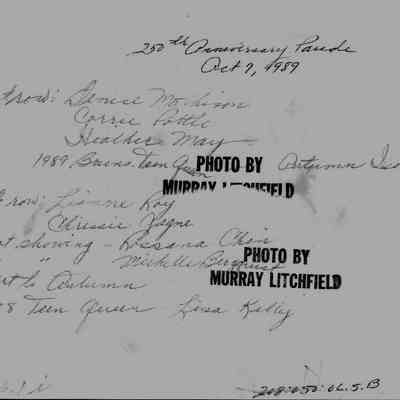 250th Anniversary Parade
Oct 7, 1989
row: Denise
Corrie Pottle
Heather May
1989 Burns. Teen Queen Autumn
PHOTO BY
MURRAY LITCHFIELD
row: Lianne Roy
Chrissie Jagne
t showing - Rossana Chin
" Michelle Bergquist
PHOTO BY
MURRAY LITCHFIELD
t to Autumn
8 Teen Queen Lisa Kelly